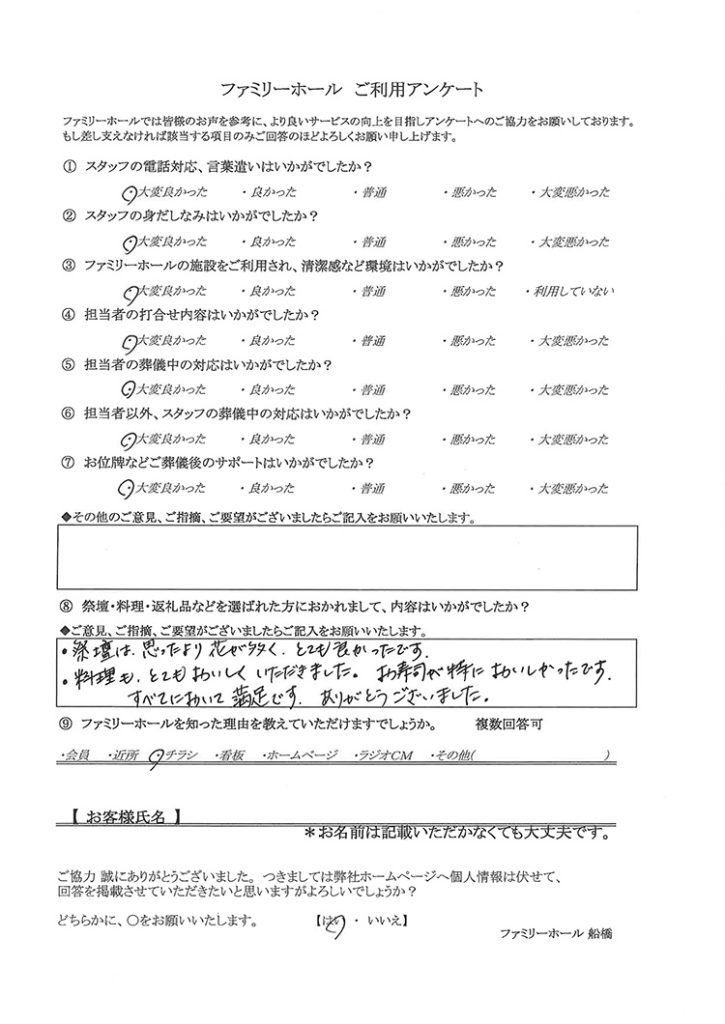 ファミリーホール ご利用アンケート
ファミリーホールでは皆様のお声を参考に、より良いサービスの向上を目指しアンケートへのご協力をお願いしております。
もし差し支えなければ該当する項目のみご回答のほどよろしくお願い申し上げます。
① スタッフの電話対応、言葉遣いはいかがでしたか？
・大変良かった ・良かった ・普通 ・悪かった ・大変悪かった
② スタッフの身だしなみはいかがでしたか？
・大変良かった ・良かった ・普通 ・悪かった ・大変悪かった
③ ファミリーホールの施設をご利用され、清潔感など環境はいかがでしたか？
・大変良かった ・良かった ・普通 ・悪かった ・利用していない
④ 担当者の打合せ内容はいかがでしたか？
・大変良かった ・良かった ・普通 ・悪かった ・大変悪かった
⑤ 担当者の葬儀中の対応はいかがでしたか？
・大変良かった ・良かった ・普通 ・悪かった ・大変悪かった
⑥ 担当者以外、スタッフの葬儀中の対応はいかがでしたか？
・大変良かった ・良かった ・普通 ・悪かった ・大変悪かった
⑦ お位牌などご葬儀後のサポートはいかがでしたか？
・大変良かった ・良かった ・普通 ・悪かった ・大変悪かった
◆その他のご意見、ご指摘、ご要望がございましたらご記入をお願いいたします。
⑧ 祭壇・料理・返礼品などを選ばれた方におかれまして、内容はいかがでしたか？
◆ご意見、ご指摘、ご要望がございましたらご記入をお願いいたします。
・祭壇は、思ったより花が多く、とても良かったです。
・料理も、とてもおいしくいただきました。お寿司が特においしかったです。
すべてにおいて満足です。ありがとうございました。
⑨ ファミリーホールを知った理由を教えていただけますでしょうか。 複数回答可
・会員 ・近所 ・チラシ ・看板 ・ホームページ ・ラジオCM ・その他( )
【 お客様氏名 】
＊お名前は記載いただかなくても大丈夫です。
ご協力 誠にありがとうございました。つきましては弊社ホームページへ個人情報は伏せて、
回答を掲載させていただきたいと思いますがよろしいでしょうか？
どちらかに、○をお願いいたします。 【はい ・ いいえ】
ファミリーホール 船橋